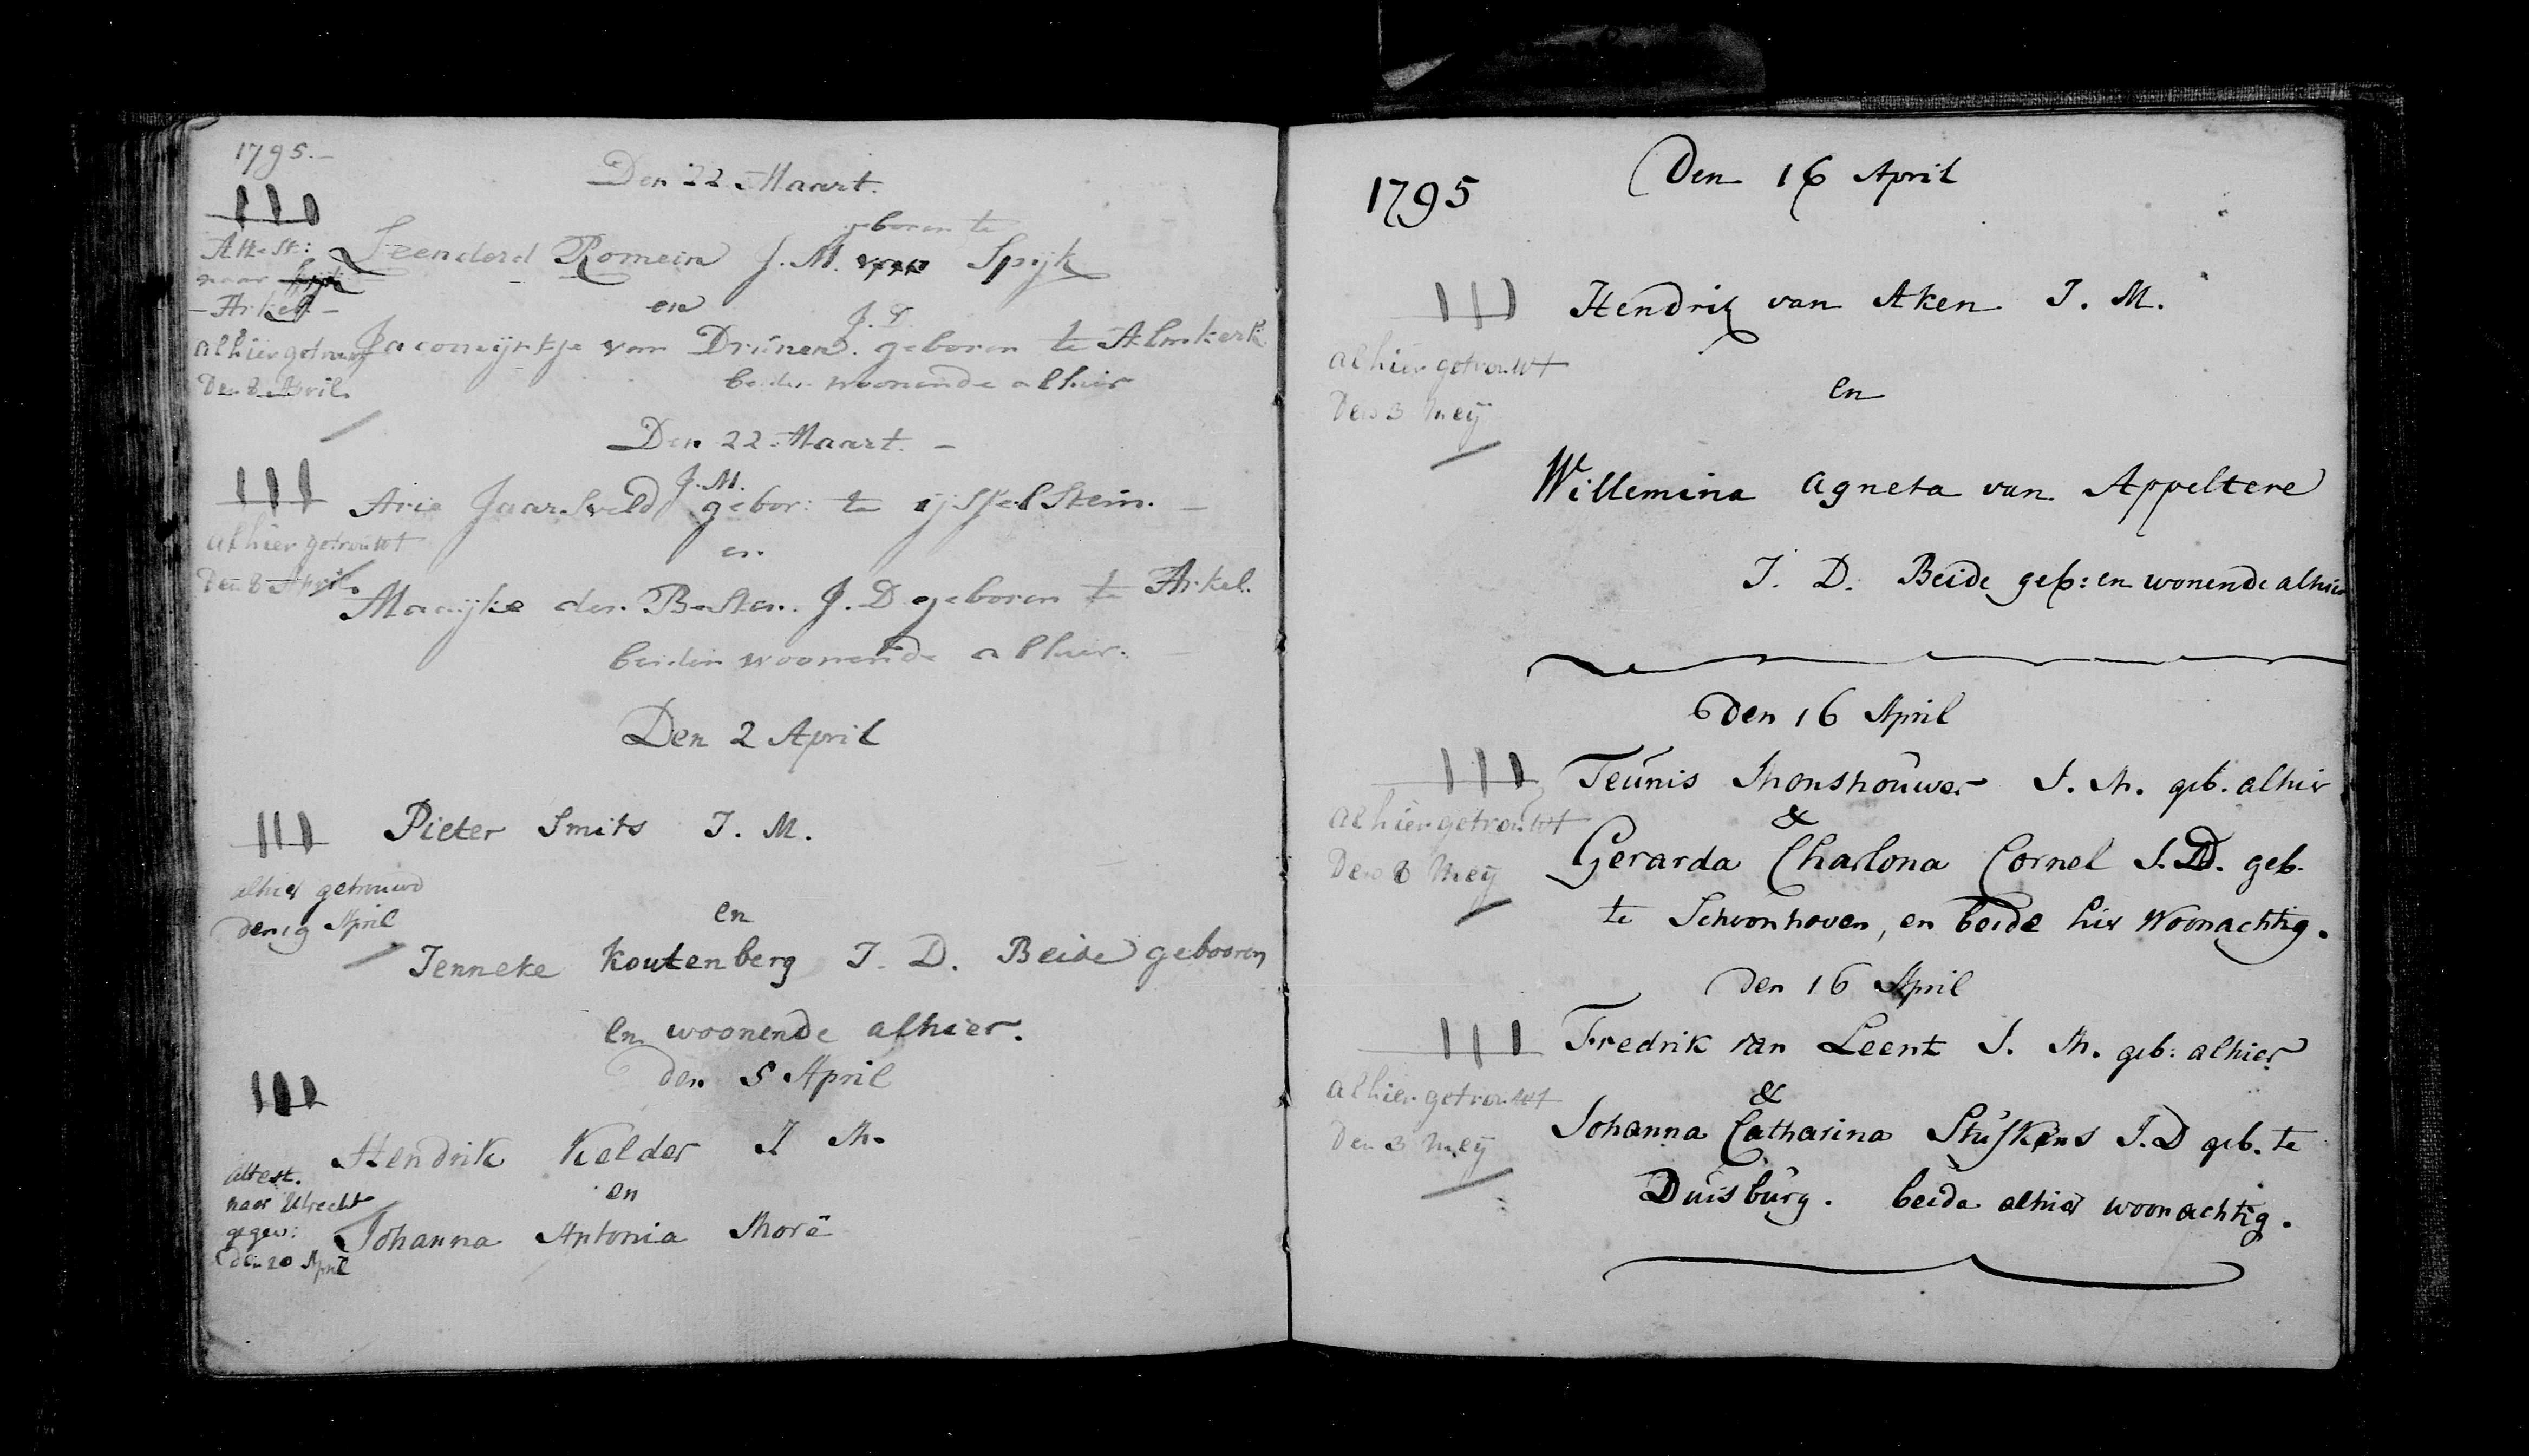 1795.-
Den 22 Maart.
Attest:
naar
-Arkel-
alhier getrouwt
Den 8 April.
geboren te
Leenderd Romein J. M. Spijk
en
J. D.
Jacomijntje van Drunen. geboren te Almkerk
beiden woonende alhier
Den 22 Maart. -
J. M.
Arie Jaarsveld gebor: te ijsselstein. -
alhier getrouwt
Den 8 April.
en
Maaijke den Besten. J. D geboren te Arkel.
beiden woonende alhier. -
Den 2 April
Pieter Smits J. M.
alhier getrouwd
den 19 April
en
Jenneke Koutenberg J. D. Beide gebooren
en woonende alhier.
den 5 April
Hendrik Kelder J M.
attest.
naar Utrecht
gegev:
den 20 April
en
Johanna Antonia Moré
1795
Den 16 April
Hendrik van Aken J. M.
alhier getrouwt
Den 3 Meÿ
en
Willemina Agneta van Appeltere
J. D. Beide geb: en wonende alhier
den 16 April
Teunis Monshouwer J. M. geb. alhier
alhier getrouwt
Den 8 Meÿ
&
Gerarda Charlona Cornel J. D. geb.
te Schoonhoven, en beide hier Woonachtig.
den 16 April
Fredrik van Leent J. M. geb: alhier
alhier getrouwt
Den 3 Meÿ
&
Johanna Catharina J. D geb. te
Duisburg. beide alhier woonachtig.